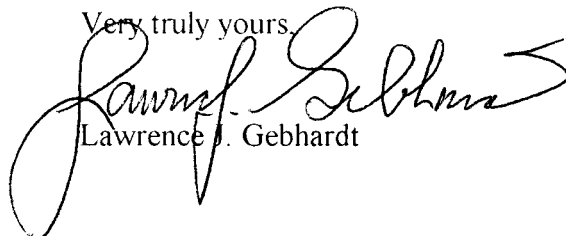 Very truly yours,
Lawrence J. Gebhardt
Lawrence J. Gebhardt